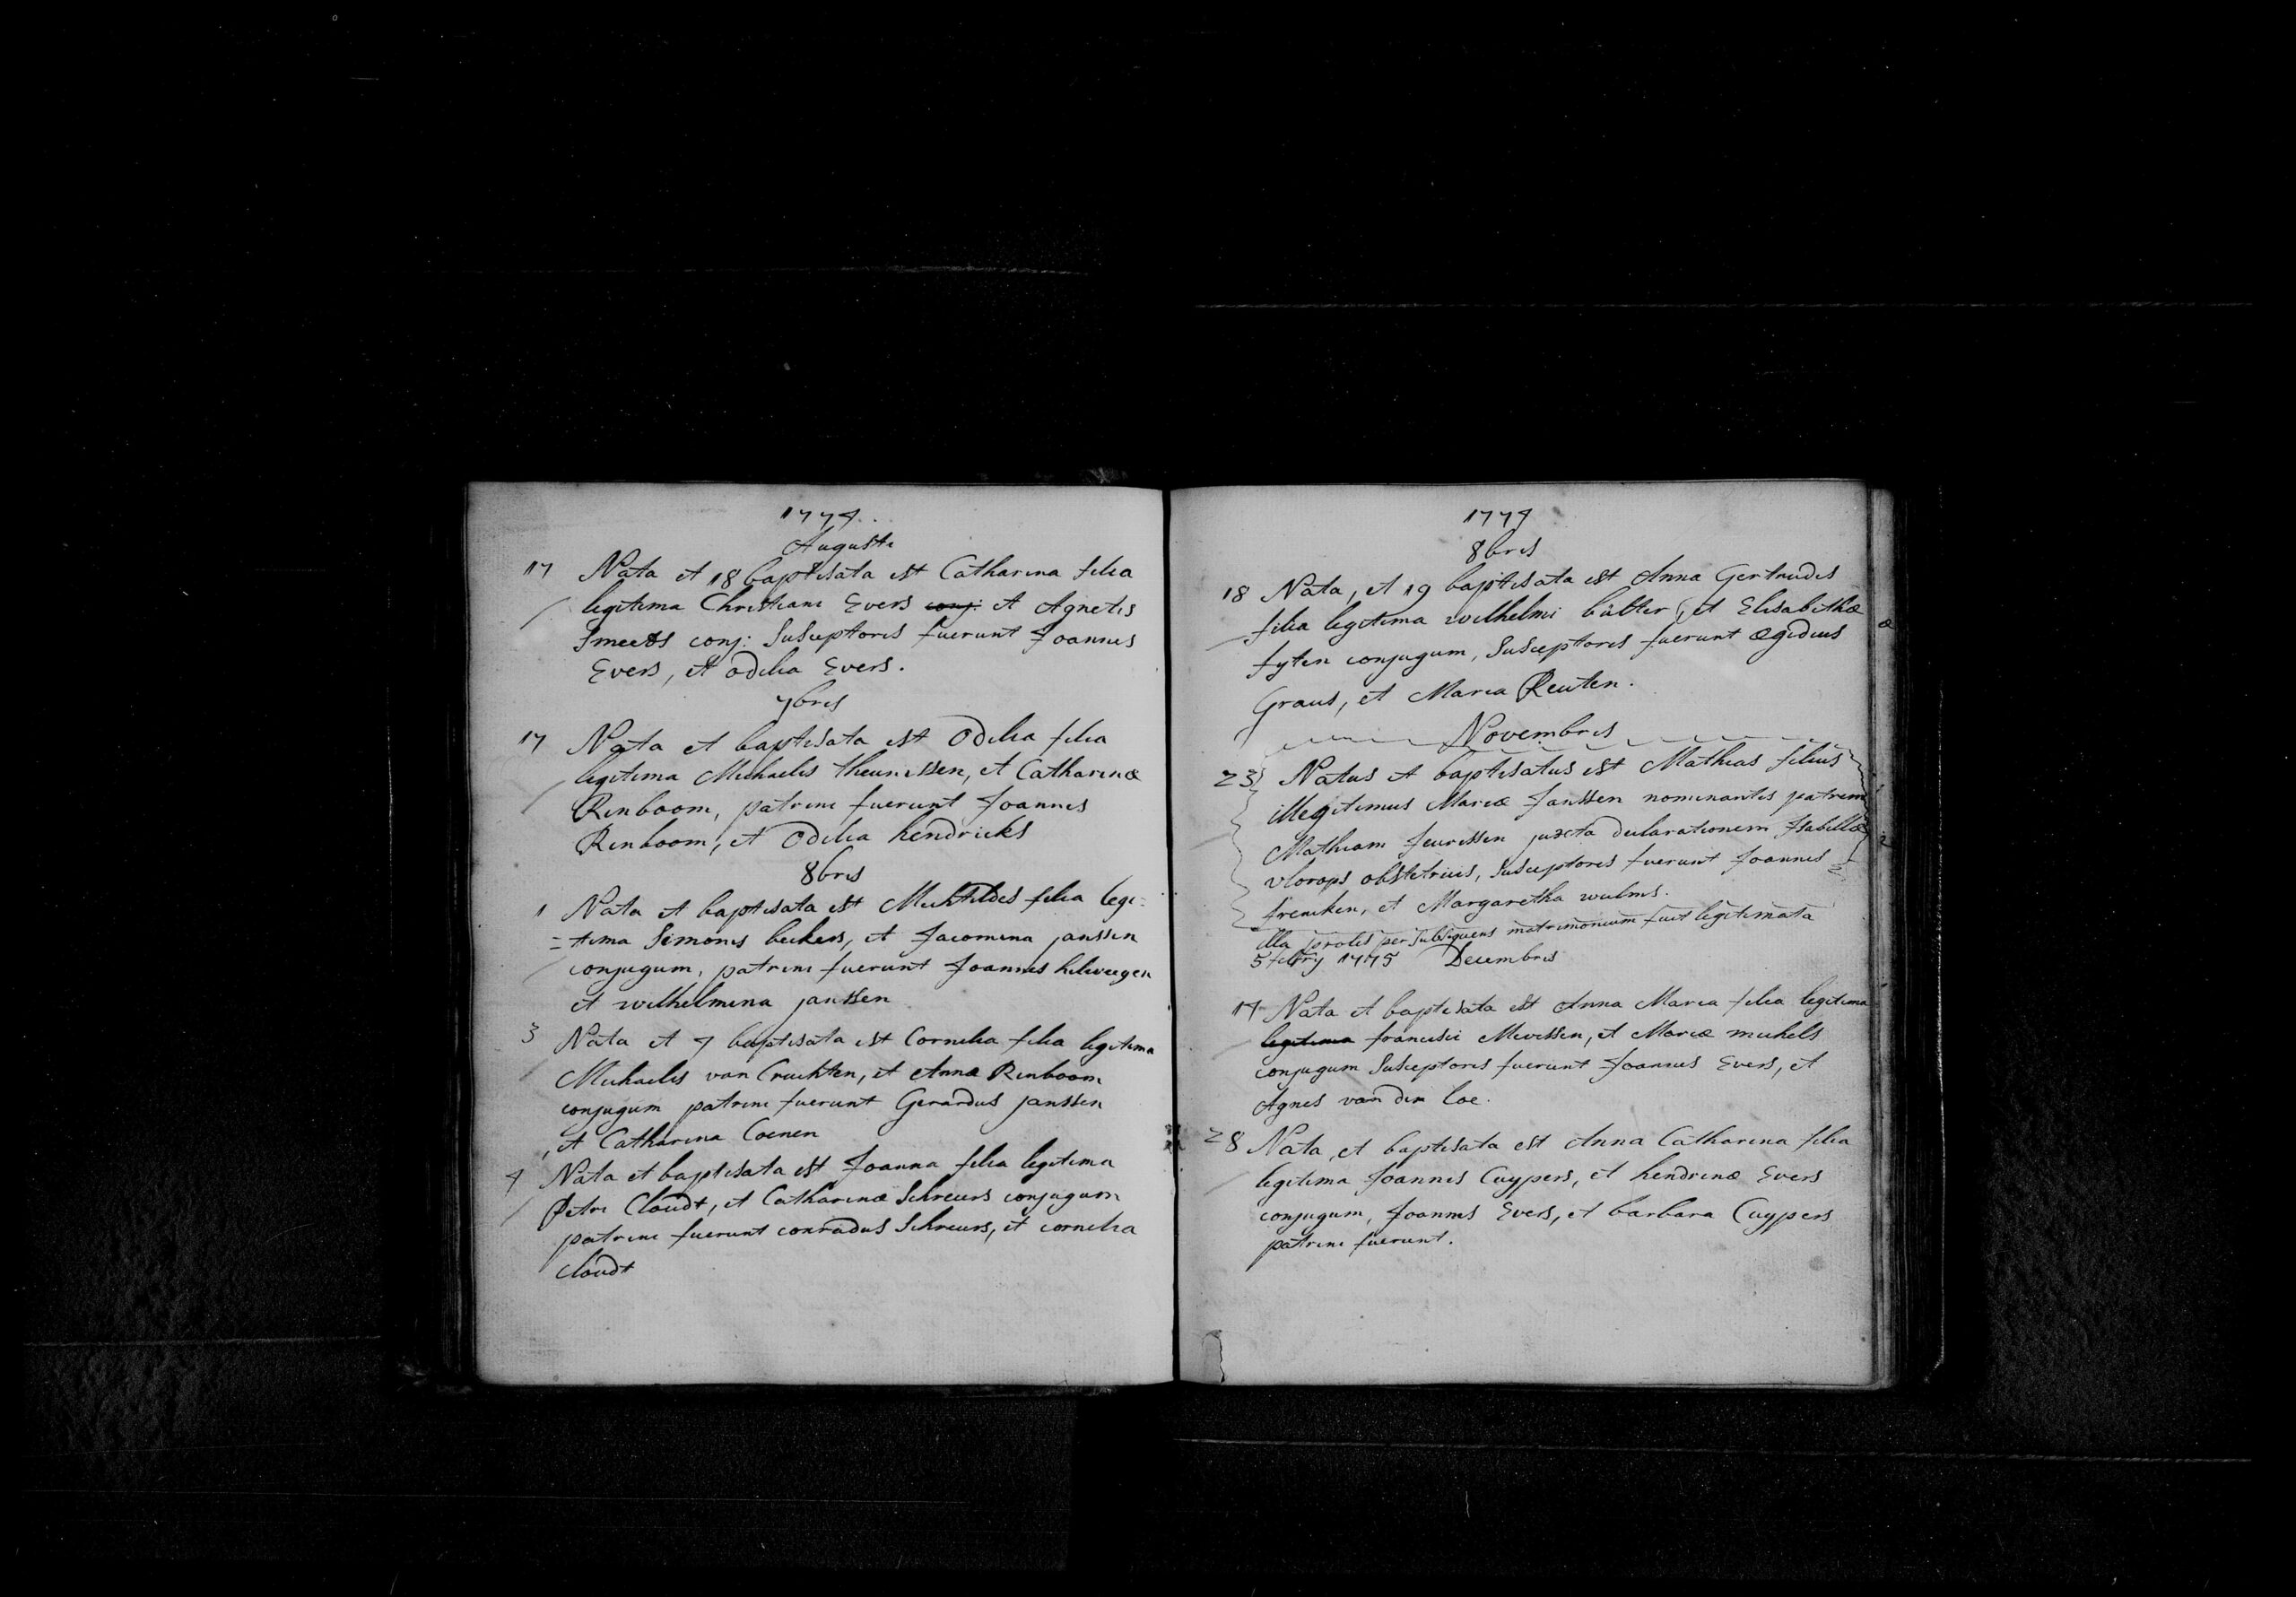 1774
Augusti
17 Nata et 18 baptisata est Catharina filia
legitima Christiani Evers conj: et Agnetis
Smeets conj: Susceptores fuerunt Joannes
Evers, et Odilia Evers.
7bris
17 Nata et baptisata est Odilia filia
legitima Michaelis theunissen, et Catharinæ
Rinboom, patrini fuerunt Joannes
Rinboom, et Odilia hendricks
8bris
1 Nata et baptisata est Mechtildis filia legi=
=tima Simonis beckers, et Jacomina janssen
conjugum, patrini fuerunt Joannes hilweegen
et wilhelmina janssen
3 Nata et 4 baptisata est Cornelia filia legitima
Michaelis van Cruchten, et Annæ Rinboom
conjugum patrini fuerunt Gerardus janssen
, et Catharina Coenen
4 Nata et baptisata est Joanna filia legitima
Petri Cloudt, et Catharinæ Schreurs conjugum
patrini fuerunt conradus Schreurs, et cornelia
cloudt
1774
8bris
18 Nata, et 19 baptisata est Anna Gertrudis
filia legitima wilhelmi bùlter, et Elisabethæ
fyten conjugum, Susceptores fuerunt ægidius
Graus, et Maria Reuten.
Novembris
23 Natus et baptisatus est Mathias filius
illegitimus Mariæ Janssen nominantis patrem
Mathiam Jeurissen juxta declarationem Isabellæ
vlorops obstetricis, susceptores fuerunt Joannes
frencken, et Margaretha wulms.
illa prolis per subsequens matrimonium fuit legitimata
5 febry 1775 Decembris
17 Nata et baptisata est Anna Maria filia legitima
legitima francisci Mevissen, et Mariæ michels
conjugum Susceptores fuerunt Joannes Evers, et
Agnes van der loe.
28 Nata, et baptisata est Anna Catharina filia
legitima Joannis Cuypers, et hendrinæ Evers
conjugum, Joannes Evers, et barbara Cuypers
patrini fuerunt.